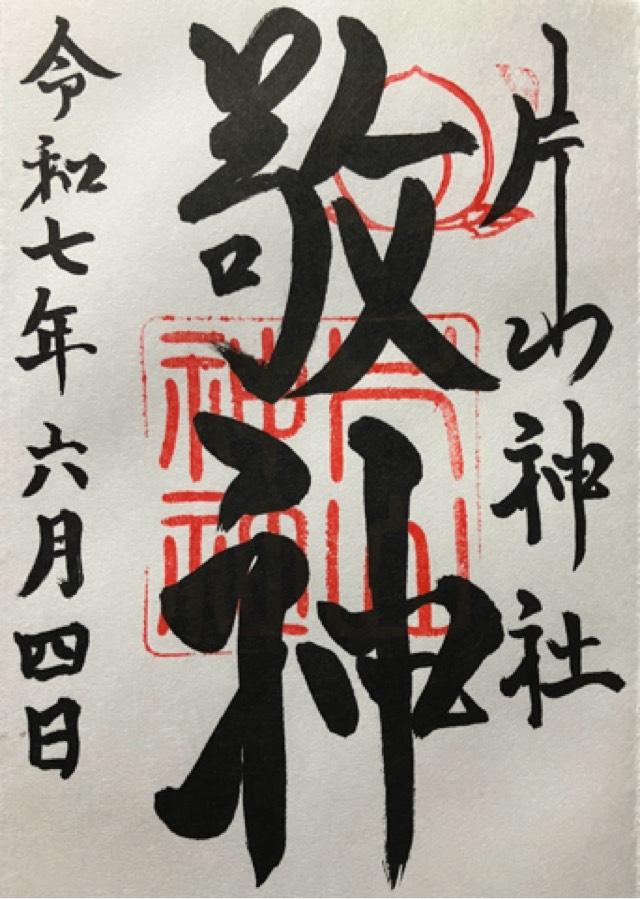 片山神社
敬神
片山神社
令和七年六月四日